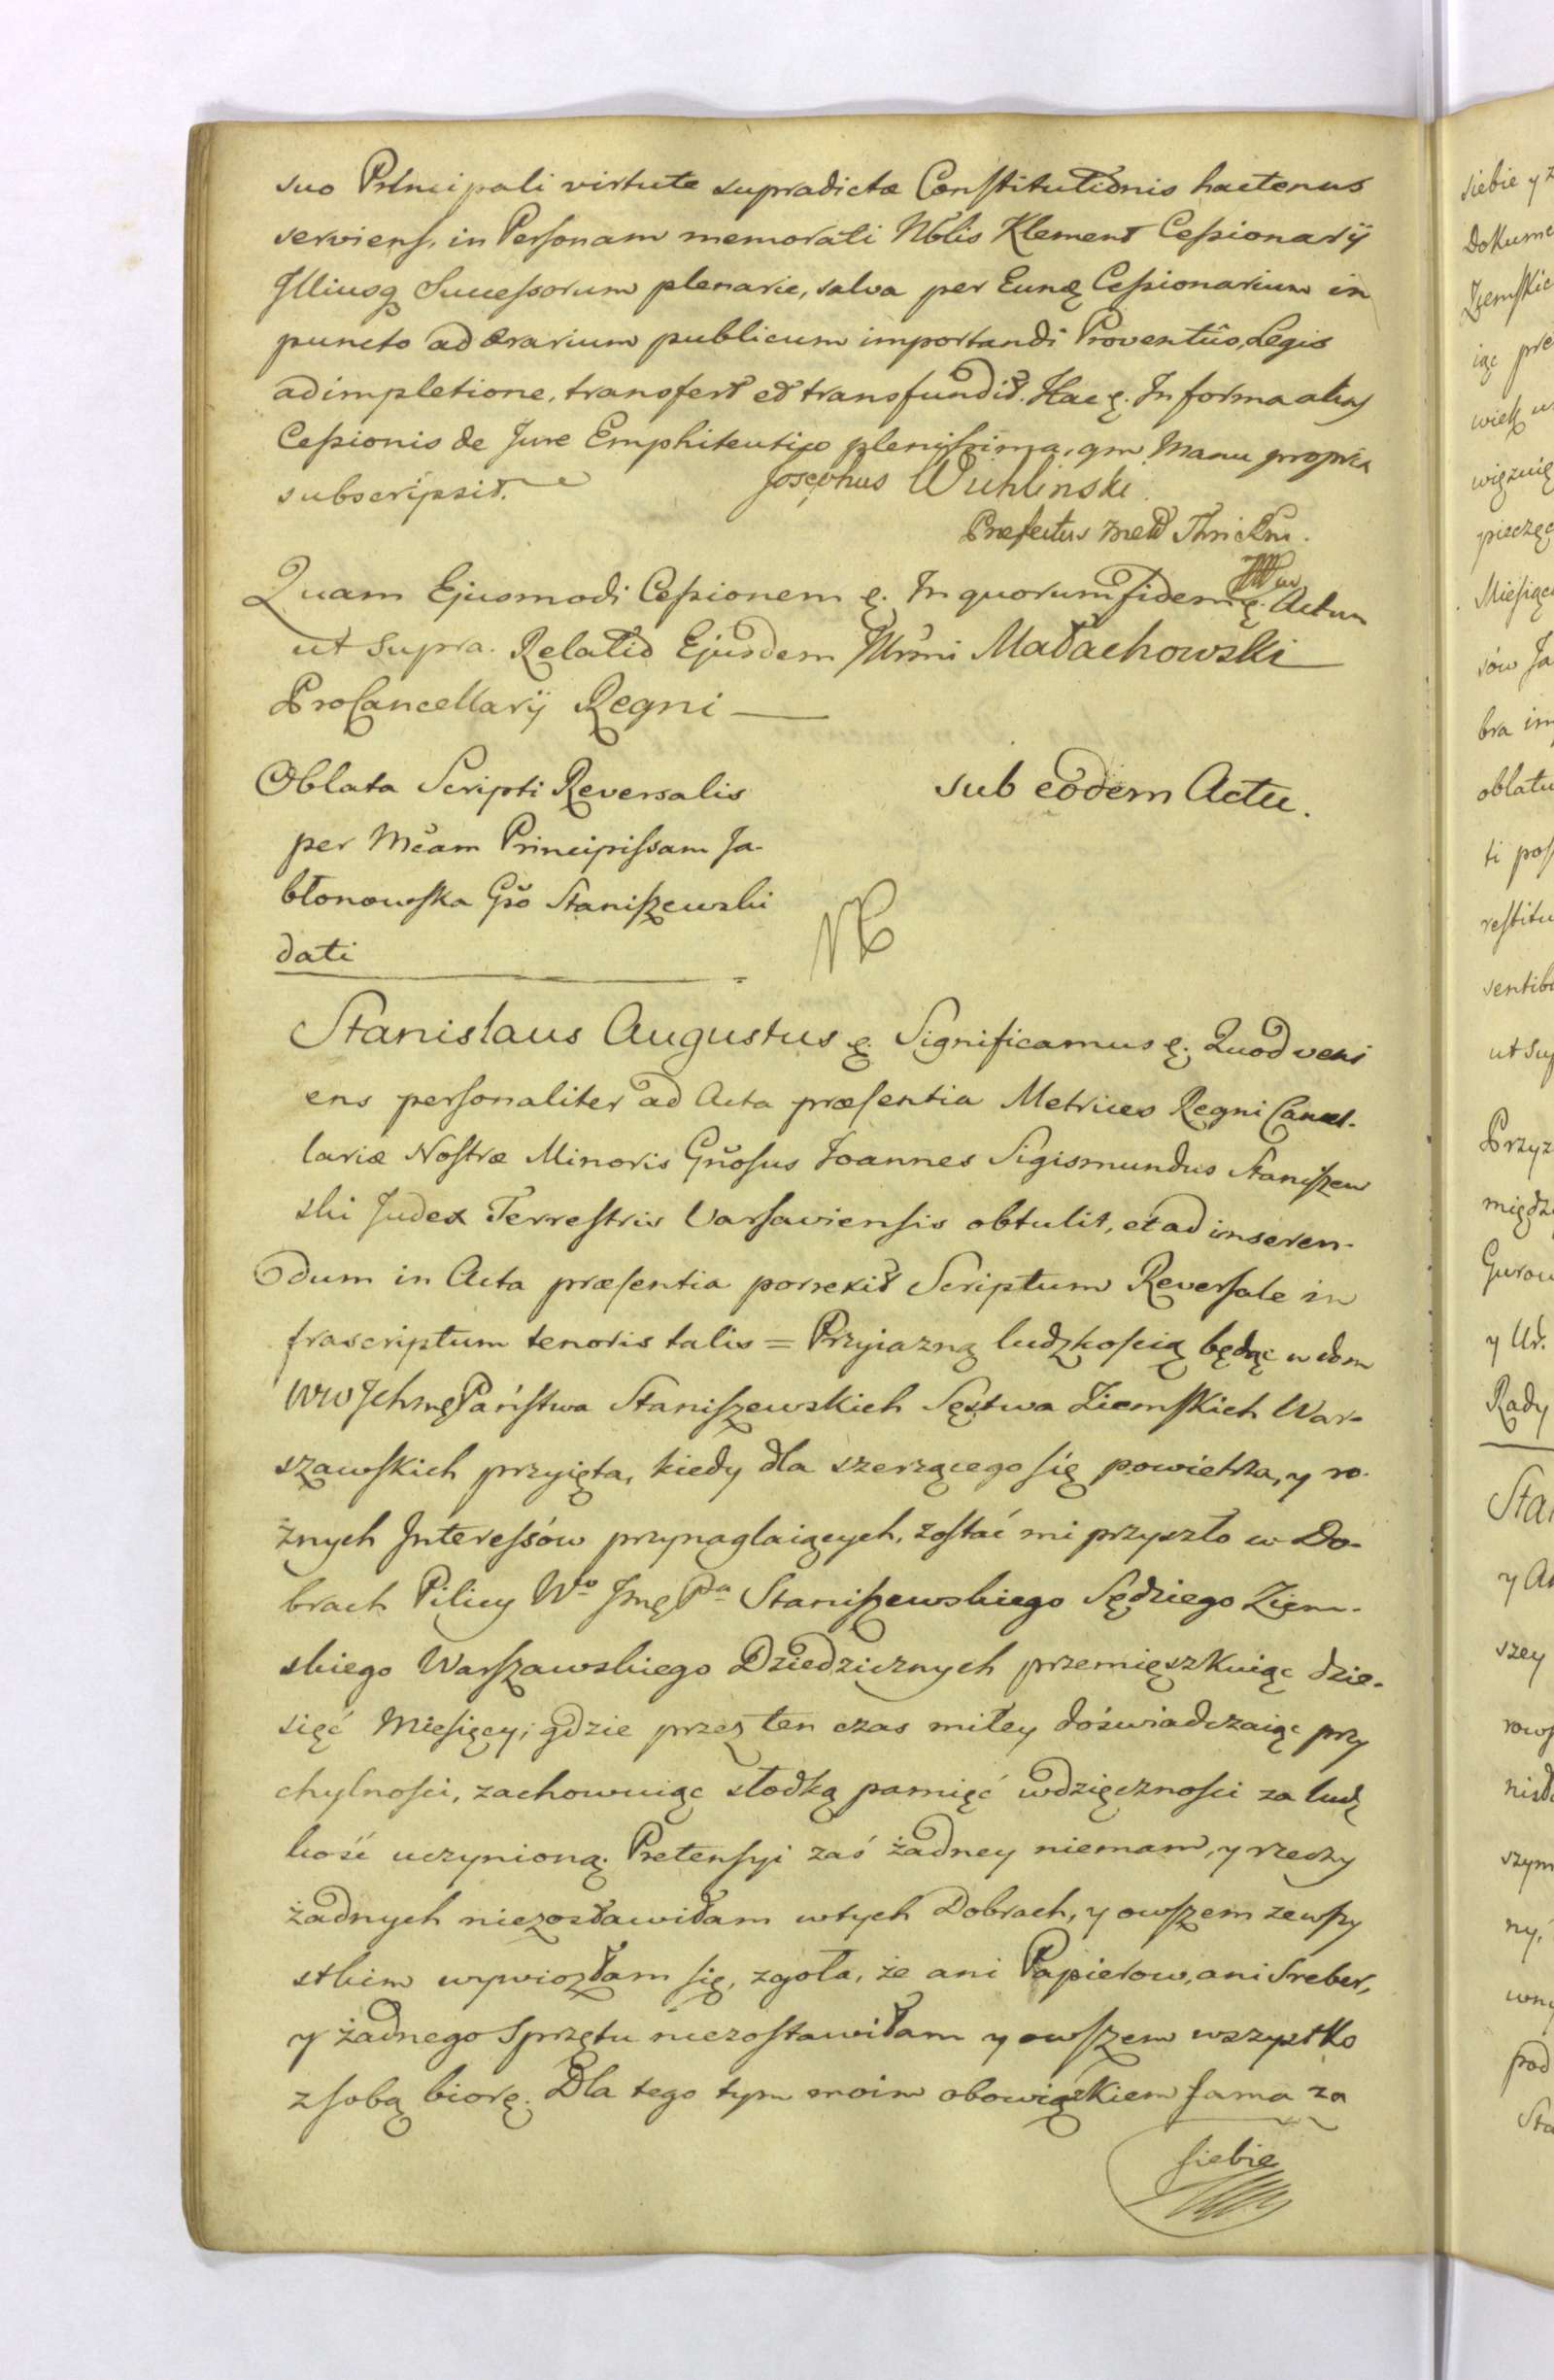 suo Principali virtute supradictæ Constitutionis hactenus
serviens, in Personam memorati Nblis Klement Cessionarij
Illiusq Successorum plenarie, salva per Eundę Cessionarium in
puncto ad ærarium publicum importandi Proventûs, Legis
adimpletione, transfert et transfundit. Hac ę. In forma alias
Cessionis de Jure Emphiteutico plenissima, qm Manu propria
subscripsit. Josephus Wichlinski
Præfectus
Quam Ejusmodi Cessionem ę. In quorum fidem ę. Actum
ut supra. Relatio Ejusdem Illrmi Małachowski
ProCancellarij Regni
Oblata Scripti Reversalis
per Mcam Principissam Ja-
błonowska Gso Staniszewski
dati
sub eodem Actu.
Stanislaus Augustus ę. Significamus ę. Quod veni
ens personaliter ad Acta præsentia Metrices Regni Cancel-
lariæ Nostræ Minoris Gnosus Joannes Sigismundus Staniszew
ski Judex Terrestris Varsaviensis obtulit, et ad inseren-
dum in Acta præsentia porrexit Scriptum Reversale in
frascriptum tenoris talis = Przyiazną ludzkością będąc w dom
WW Ichmę Państwa Staniszewskich Sęstwa Ziemskich War-
szawskich przyięta, kiedy dla szerzącego się powietrza, y ro-
żnych Interessów przynaglaiących, zostać mi przyszło w Do-
brach Pilicy Wo Jmę Pa Staniszewskiego Sędziego Ziem-
skiego Warszawskiego Dziedzicznych przemięszkuiąc dzie-
sięć Miesięcy; gdzie przez ten czas miłey doświadczaiąc przy
chylności, zachowuiąc słodką pamięć wdzięczności za ludz
kość uczynioną. Pretensyi zaś żadney niemam, y rzeczy
żadnych niezostawiłam w tych Dobrach, y owszem zewszy
stkim wywiozłam się, zgoła, że ani Papierow, ani Sreber,
y żadnego Sprzętu niezostawiłam y owszem wszystko
z sobą biorę. Dla tego tym moim obowiązkiem sama za
siebie